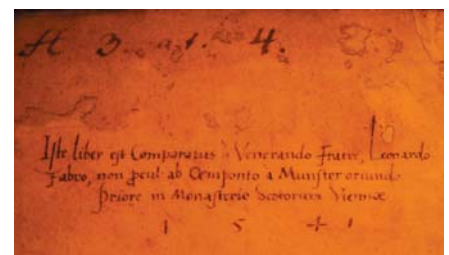 H 3. at. 4.
Iste liber est Comparatus à Venerando Fratre, Leonardo
Fabro, non procul ab Oemponto a Munster oriundo
Priore in Monasterio Scotorum Viennæ
1 5 4 1